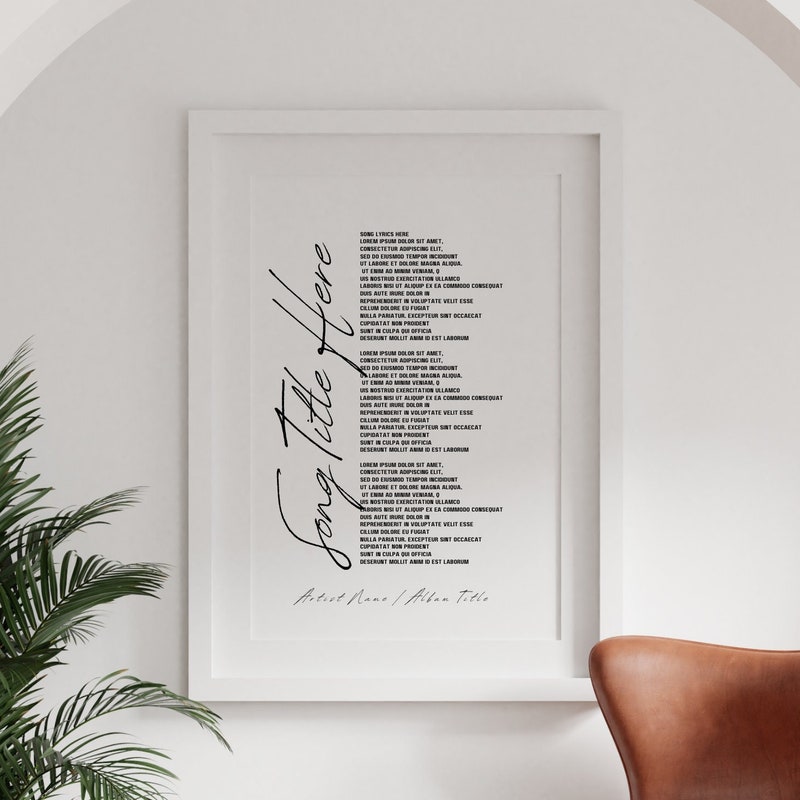 Song Title Here
SONG LYRICS HERE
LOREM IPSUM DOLOR SIT AMET,
CONSECTETUR ADIPISCING ELIT,
SED DO EIUSMOD TEMPOR INCIDIDUNT
UT LABORE ET DOLORE MAGNA ALIQUA.
UT ENIM AD MINIM VENIAM, Q
UIS NOSTRUD EXERCITATION ULLAMCO
LABORIS NISI UT ALIQUIP EX EA COMMODO CONSEQUAT
DUIS AUTE IRURE DOLOR IN
REPREHENDERIT IN VOLUPTATE VELIT ESSE
CILLUM DOLORE EU FUGIAT
NULLA PARIATUR. EXCEPTEUR SINT OCCAECAT
CUPIDATAT NON PROIDENT
SUNT IN CULPA QUI OFFICIA
DESERUNT MOLLIT ANIM ID EST LABORUM
LOREM IPSUM DOLOR SIT AMET,
CONSECTETUR ADIPISCING ELIT,
SED DO EIUSMOD TEMPOR INCIDIDUNT
UT LABORE ET DOLORE MAGNA ALIQUA.
UT ENIM AD MINIM VENIAM, Q
UIS NOSTRUD EXERCITATION ULLAMCO
LABORIS NISI UT ALIQUIP EX EA COMMODO CONSEQUAT
DUIS AUTE IRURE DOLOR IN
REPREHENDERIT IN VOLUPTATE VELIT ESSE
CILLUM DOLORE EU FUGIAT
NULLA PARIATUR. EXCEPTEUR SINT OCCAECAT
CUPIDATAT NON PROIDENT
SUNT IN CULPA QUI OFFICIA
DESERUNT MOLLIT ANIM ID EST LABORUM
LOREM IPSUM DOLOR SIT AMET,
CONSECTETUR ADIPISCING ELIT,
SED DO EIUSMOD TEMPOR INCIDIDUNT
UT LABORE ET DOLORE MAGNA ALIQUA.
UT ENIM AD MINIM VENIAM, Q
UIS NOSTRUD EXERCITATION ULLAMCO
LABORIS NISI UT ALIQUIP EX EA COMMODO CONSEQUAT
DUIS AUTE IRURE DOLOR IN
REPREHENDERIT IN VOLUPTATE VELIT ESSE
CILLUM DOLORE EU FUGIAT
NULLA PARIATUR. EXCEPTEUR SINT OCCAECAT
CUPIDATAT NON PROIDENT
SUNT IN CULPA QUI OFFICIA
DESERUNT MOLLIT ANIM ID EST LABORUM
Artist Name / Album Title